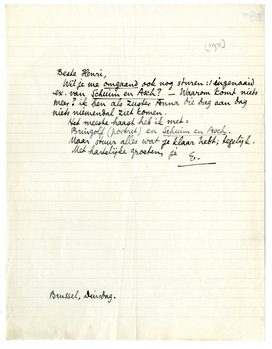 [193?]
Beste Henri,
Wil je me omgaand ook nog sturen: 1 ingenaaid
ex. van Schuim en Asch? – Waarom komt niets
meer? ik ben als zuster Anna die dag aan dag
niets niemendal ziet komen.
Het meeste haast heb ik met:
Bringolf (portret) en Schuim en Asch.
Maar stuur alles wat je klaar hebt; tegelijk.
Met hartelijke groeten, je E.
Brussel, Dinsdag.